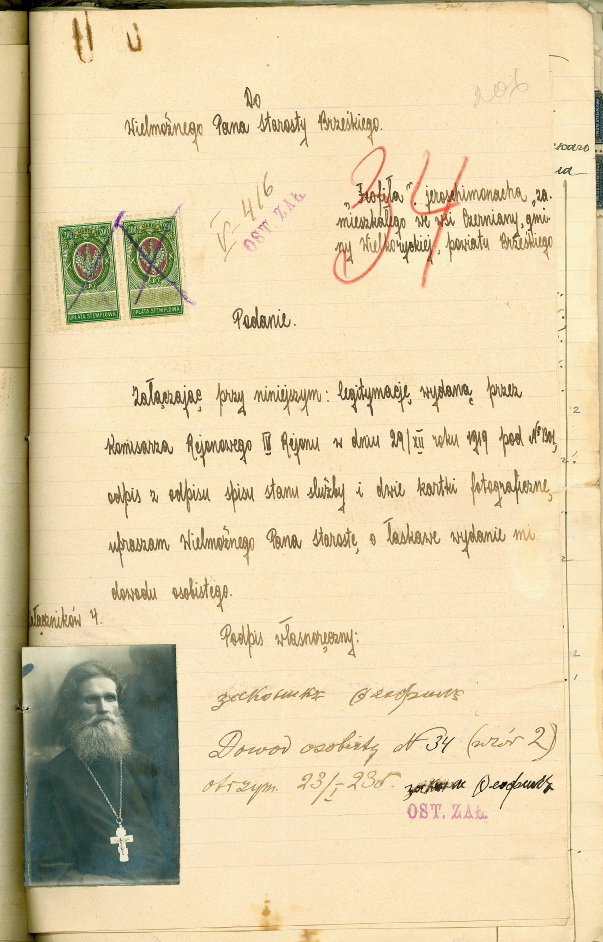 206
Do
Wielmożnego Pana Starosty Brzeskiego.
V-416
OST. ZAŁ.
34
„Teofiła”. jeroschimonacha „za.
mieszkałego we wsi Czerniany, gmi
ny Wielkoryckiej, powiatu Brzeskiego
OPŁATA STEMPLOWA
OPŁATA STEMPLOWA
Podanie.
Załączając przy niniejszym: legitymację wydaną przez
Komisarza Rejonowego IV Rejonu w dniu 29/XII roku 1919 pod №
odpis z odpisu spisu stanu służby i dwie kartki fotograficzne,
upraszam Wielmożnego Pana starostę, o łaskawe wydanie mi
dowodu osobistego.
ałączników 4.
Podpis własnoręczny:
Dowod osobisty № 34 (wzór 2)
otrzym. 23/I 23
OST. ZAŁ.